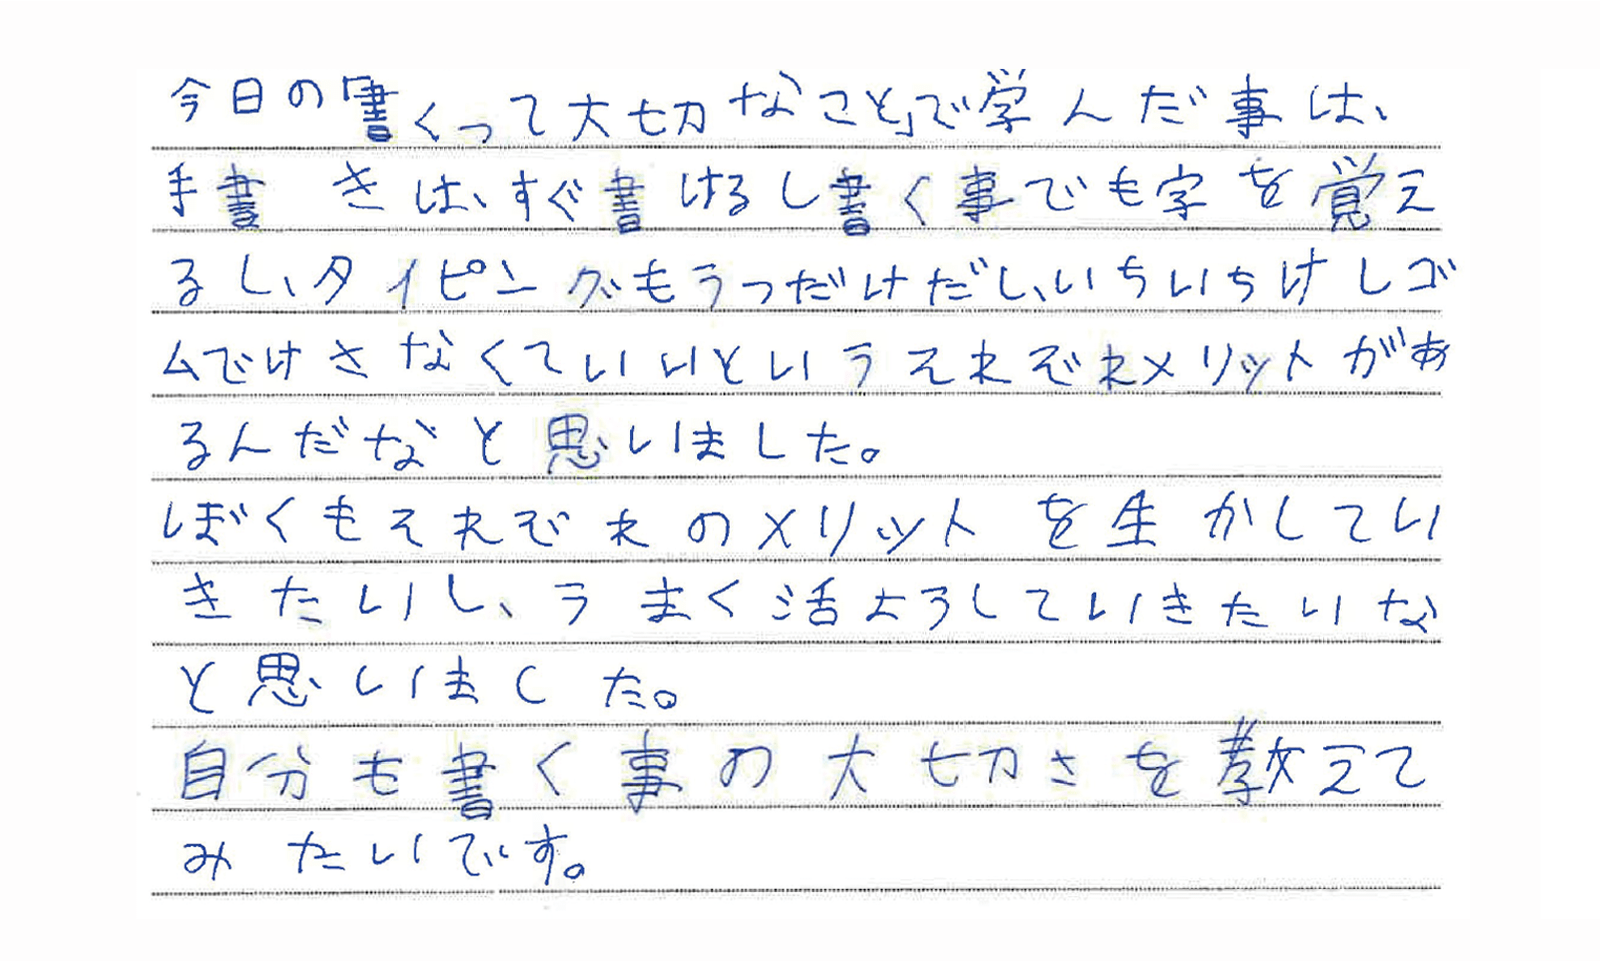 今日の「書くって大切なこと」で学んだ事は、
手書きは、すぐ書けるし書く事でも字を覚え
るし、タイピングもうつだけだし、いちいちけしゴ
ムでけさなくていいというそれぞれメリットがあ
るんだなと思いました。
ぼくもそれぞれのメリットを生かしてい
きたいし、うまく活よろしていきたいな
と思いました。
自分も書く事の大切さを教えて
みたいです。